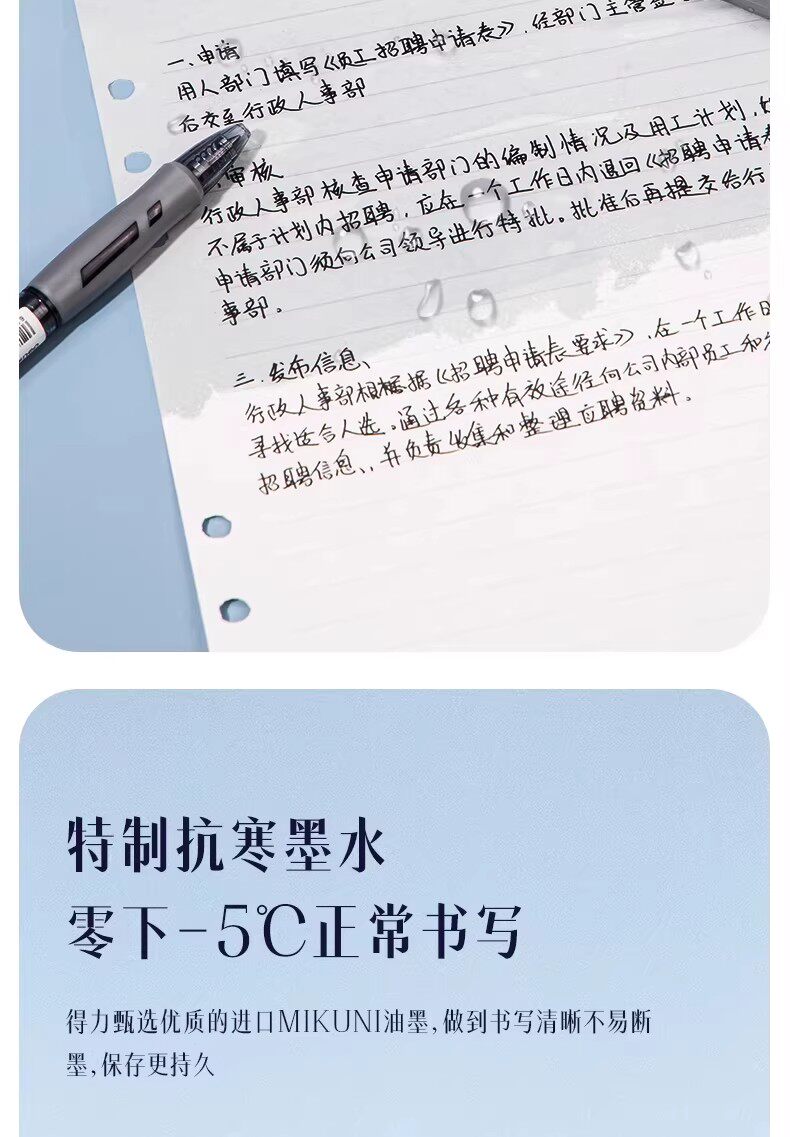 一.申请
用人部门填写《员工招聘申请表》,经部门主管签
后交至行政人事部
.审核
行政人事部核查申请部门的编制情况及用工计划,
不属于计划内招聘,应在一个工作日内退回《招聘申请表
申请部门须向公司领导进行特批。批准后再提交给行
事部。
三.发布信息、
行政人事部相根据《招聘申请表要求》,在一个工作日
寻找适合人选。通过各种有效途径向公司内部员工和
招聘信息、,并负责收集和整理应聘资料.
特制抗寒墨水
零下-5℃正常书写
得力甄选优质的进口MIKUNI油墨,做到书写清晰不易断
墨,保存更持久